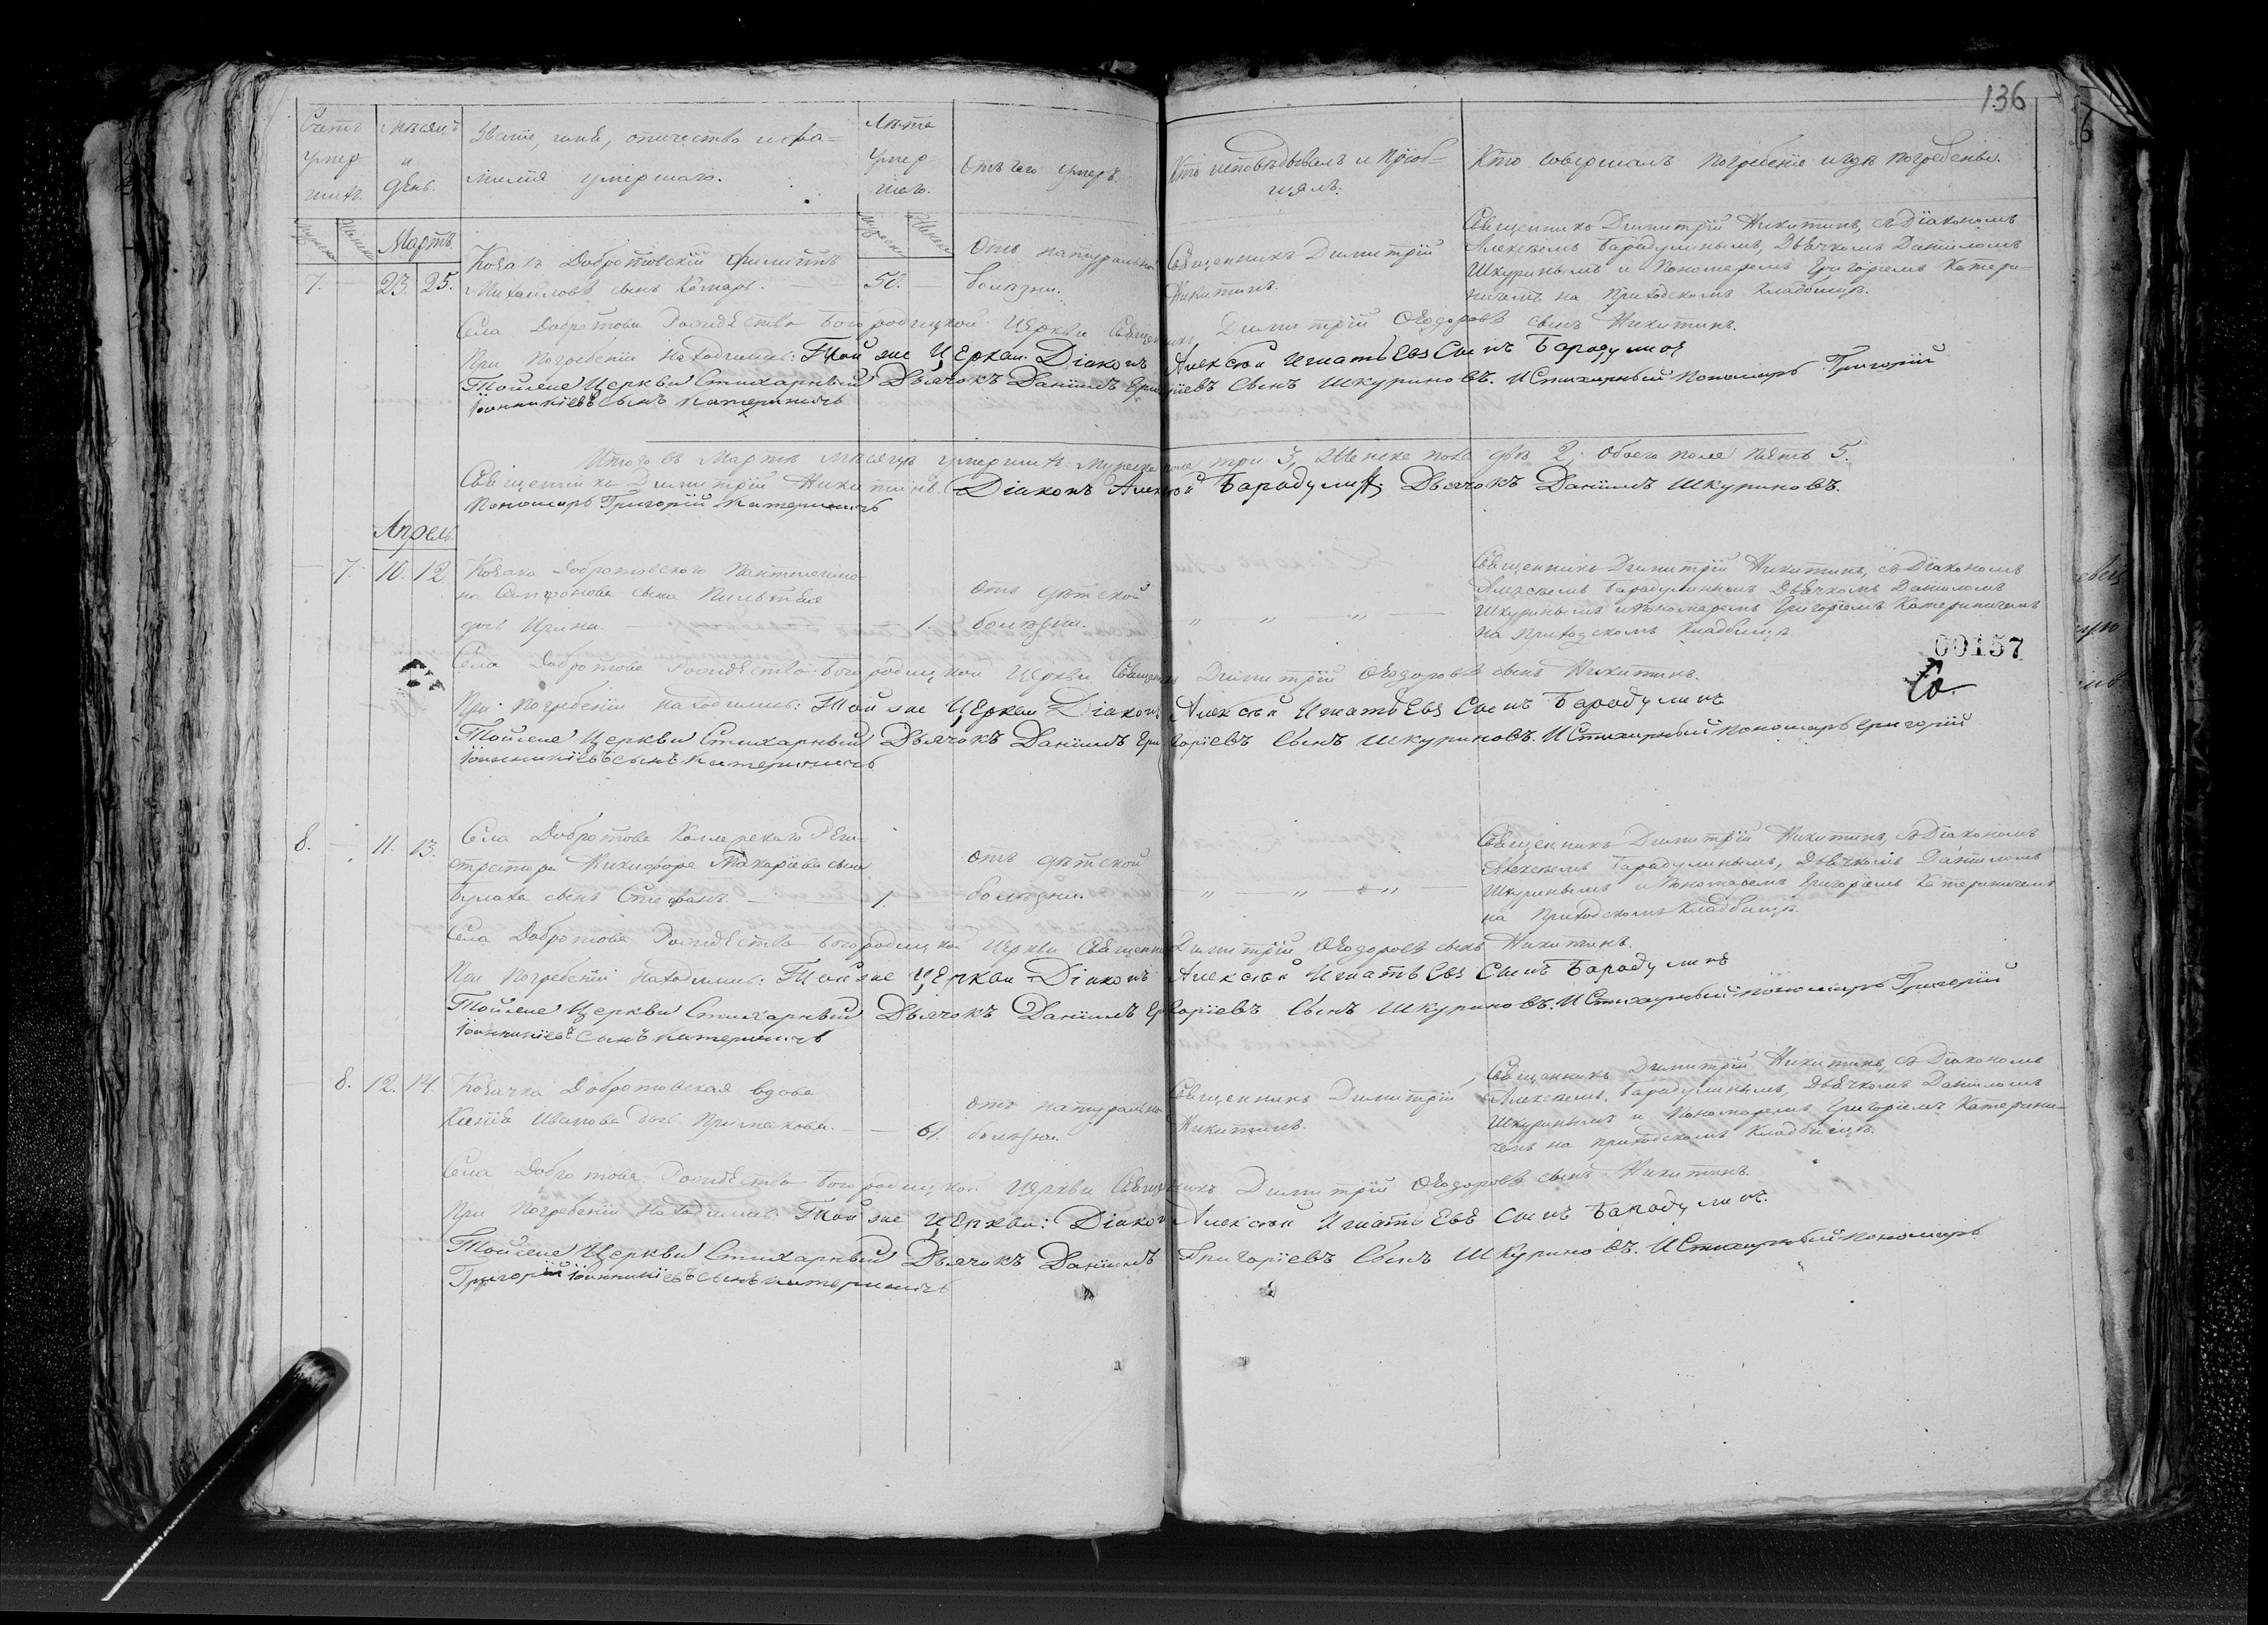 136
Счетъ умер шихъ.
Мѣсяцъ и день.
Званіе, имя, отчество и фа=
милія умершаго.
Лѣта умер шаго.
Отъ чего умеръ.
Кто исповѣдывалъ и пріоб=
щалъ.
Кто совершалъ погребеніе и гдѣ погребены.
Мартъ.
7. — 23. 25.
Козакъ Добротовскій Филиппъ
Михайловъ сынъ Комаръ.
50.
Отъ натуральной
болѣзни.
Священникъ Димитрій
Никитинъ.
Священникъ Димитрій Никитинъ, съ Діакономъ
Алексѣемъ Барадулинымъ, Дьячкомъ Даніиломъ
Шкуринымъ и Пономаремъ Григоріемъ Катери=
ничемъ на приходскомъ кладбищѣ.
Села Добротова Рождество Богородицкой Церкви Священникъ Димитрій Ѳеодоровъ сынъ Никитинъ.
При погребеніи находились: Той же Церкви Діаконъ Алексѣй Игнатьевъ Сынъ Барадулинъ
Тойже Церкви Стихарный Дьячокъ Даніилъ Григоріевъ Сынъ Шкуриновъ. И Стихарный Пономарь Григорій
Іоанникіевъ Сынъ Катериничъ
Итого въ Мартѣ мѣсяцѣ умершихъ мужеска пола три 3, Женска пола двѣ 2; Обоего пола пять 5.
Священникъ Димитрій Никитинъ. Діаконъ Алексѣй Барадулинъ Дьячокъ Даніилъ Шкуриновъ.
Пономарь Григорій Катериничъ
Апрель.
— 7. 10. 12.
Козака Добротовского Пантелеимо=
на Сампсонова сына
дочь Ирина.
— 1.
отъ дѣтской
болѣзни.
" " — " —
Священникъ Димитрій Никитинъ, съ Діакономъ
Алексѣемъ Барадулинымъ Дьячкомъ Даніиломъ
Шкуринымъ и Пономаремъ Григоріемъ Катериничемъ
на приходскомъ кладбищѣ
00157
Села Добротова Рождество Богородицкой Церкви Священникъ Димитрій Ѳеодоровъ сынъ Никитинъ.
При погребеніи находились: Той же Церкви Діаконъ Алексѣй Игнатьевъ Сынъ Барадулинъ
Тойже Церкви Стихарный Дьячокъ Даніилъ Григоріевъ Сынъ Шкуриновъ. И Стихарный Пономарь Григорій
Іоанникіевъ сынъ Катериничъ
8. — 11. 13.
Села Добротова Коллежскаго Реги=
стратора Никифора Макаріева сына
Булаха сынъ Стефанъ. —
1.
отъ дѣтской
болѣзни.
" — " — " —
Священникъ Димитрій Никитинъ, съ Діакономъ
Алексѣемъ Барадулинымъ, Дьячкомъ Даніиломъ
Шкуринымъ и Пономаремъ Григоріемъ Катериничемъ
на приходскомъ кладбищѣ.
Села Добротова Рождество Богородицкой Церкви Священникъ Димитрій Ѳеодоровъ сынъ Никитинъ.
При погребеніи находились: Той же Церкви Діаконъ Алексѣй Игнатьевъ Сынъ Барадулинъ
Тойже Церкви Стихарный Дьячокъ Даніилъ Григоріевъ Сынъ Шкуриновъ. И Стихарный Пономарь Григорій
Іоанникіевъ Сынъ Катериничъ
— 8. 12. 14.
Козачка Добротовская вдова
Ксенія Иванова дочь Примакова. —
— 61.
отъ натуральной
болѣзни.
Священникъ Димитрій
Никитинъ.
Священникъ Димитрій Никитинъ, съ Діакономъ
Алексѣемъ Барадулинымъ, Дьячкомъ Даніиломъ
Шкуринымъ и Пономаремъ Григоріемъ Катерини=
чемъ на приходскомъ кладбищѣ.
Села Добротова Рождество Богородицкой Церкви Священникъ Димитрій Ѳеодоровъ сынъ Никитинъ.
При погребеніи находились: Той же Церкви: Діаконъ Алексѣй Игнатьевъ Сынъ Барадулинъ.
Тойже Церкви Стихарный Дьячокъ Даніилъ Григоріевъ Сынъ Шкуриновъ. И Стихарный Пономарь
Григорій Іоанникіевъ Сынъ Катериничъ